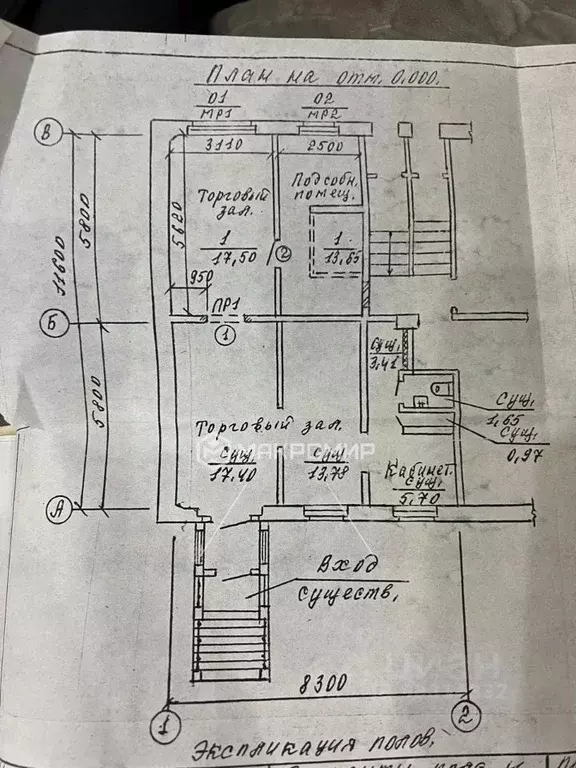 План на отм. 0.000.
01
МР1
02
МР2
В
3110
2500
Торговый
зал.
Подсобн.
помещ.
5620
5800
11600
1
17,50
2
1
13,65
950
ПР1
Б
1
сущ.
3,41
5800
Торговый зал.
сущ.
17,40
МАКРОМИР
сущ.
13,78
сущ.
1,65
сущ.
0,97
Кабинет.
сущ.
5,70
А
Вход
существ.
8300
1
2
Экспликация полов.